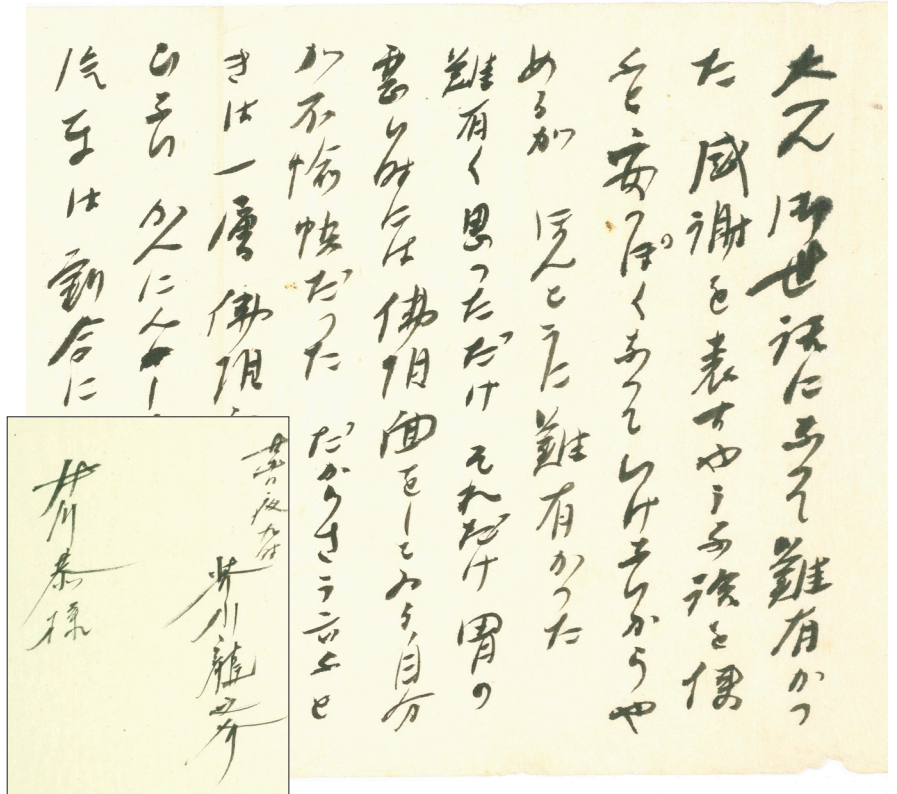 大へん御世話になつて難有かつ
た 感謝を表すやうな語を使
ふと安つぽくなつていけないからや
めるが ほんとうに難有かつた
難有く思つただけ それだけ 胃の
悪い時には佛頂面をしてゐる自分
が不愉快だつた だからさう云ふと
きは一層佛頂
かんにんし
汽車は割合に
芥川龍之介
井川恭様